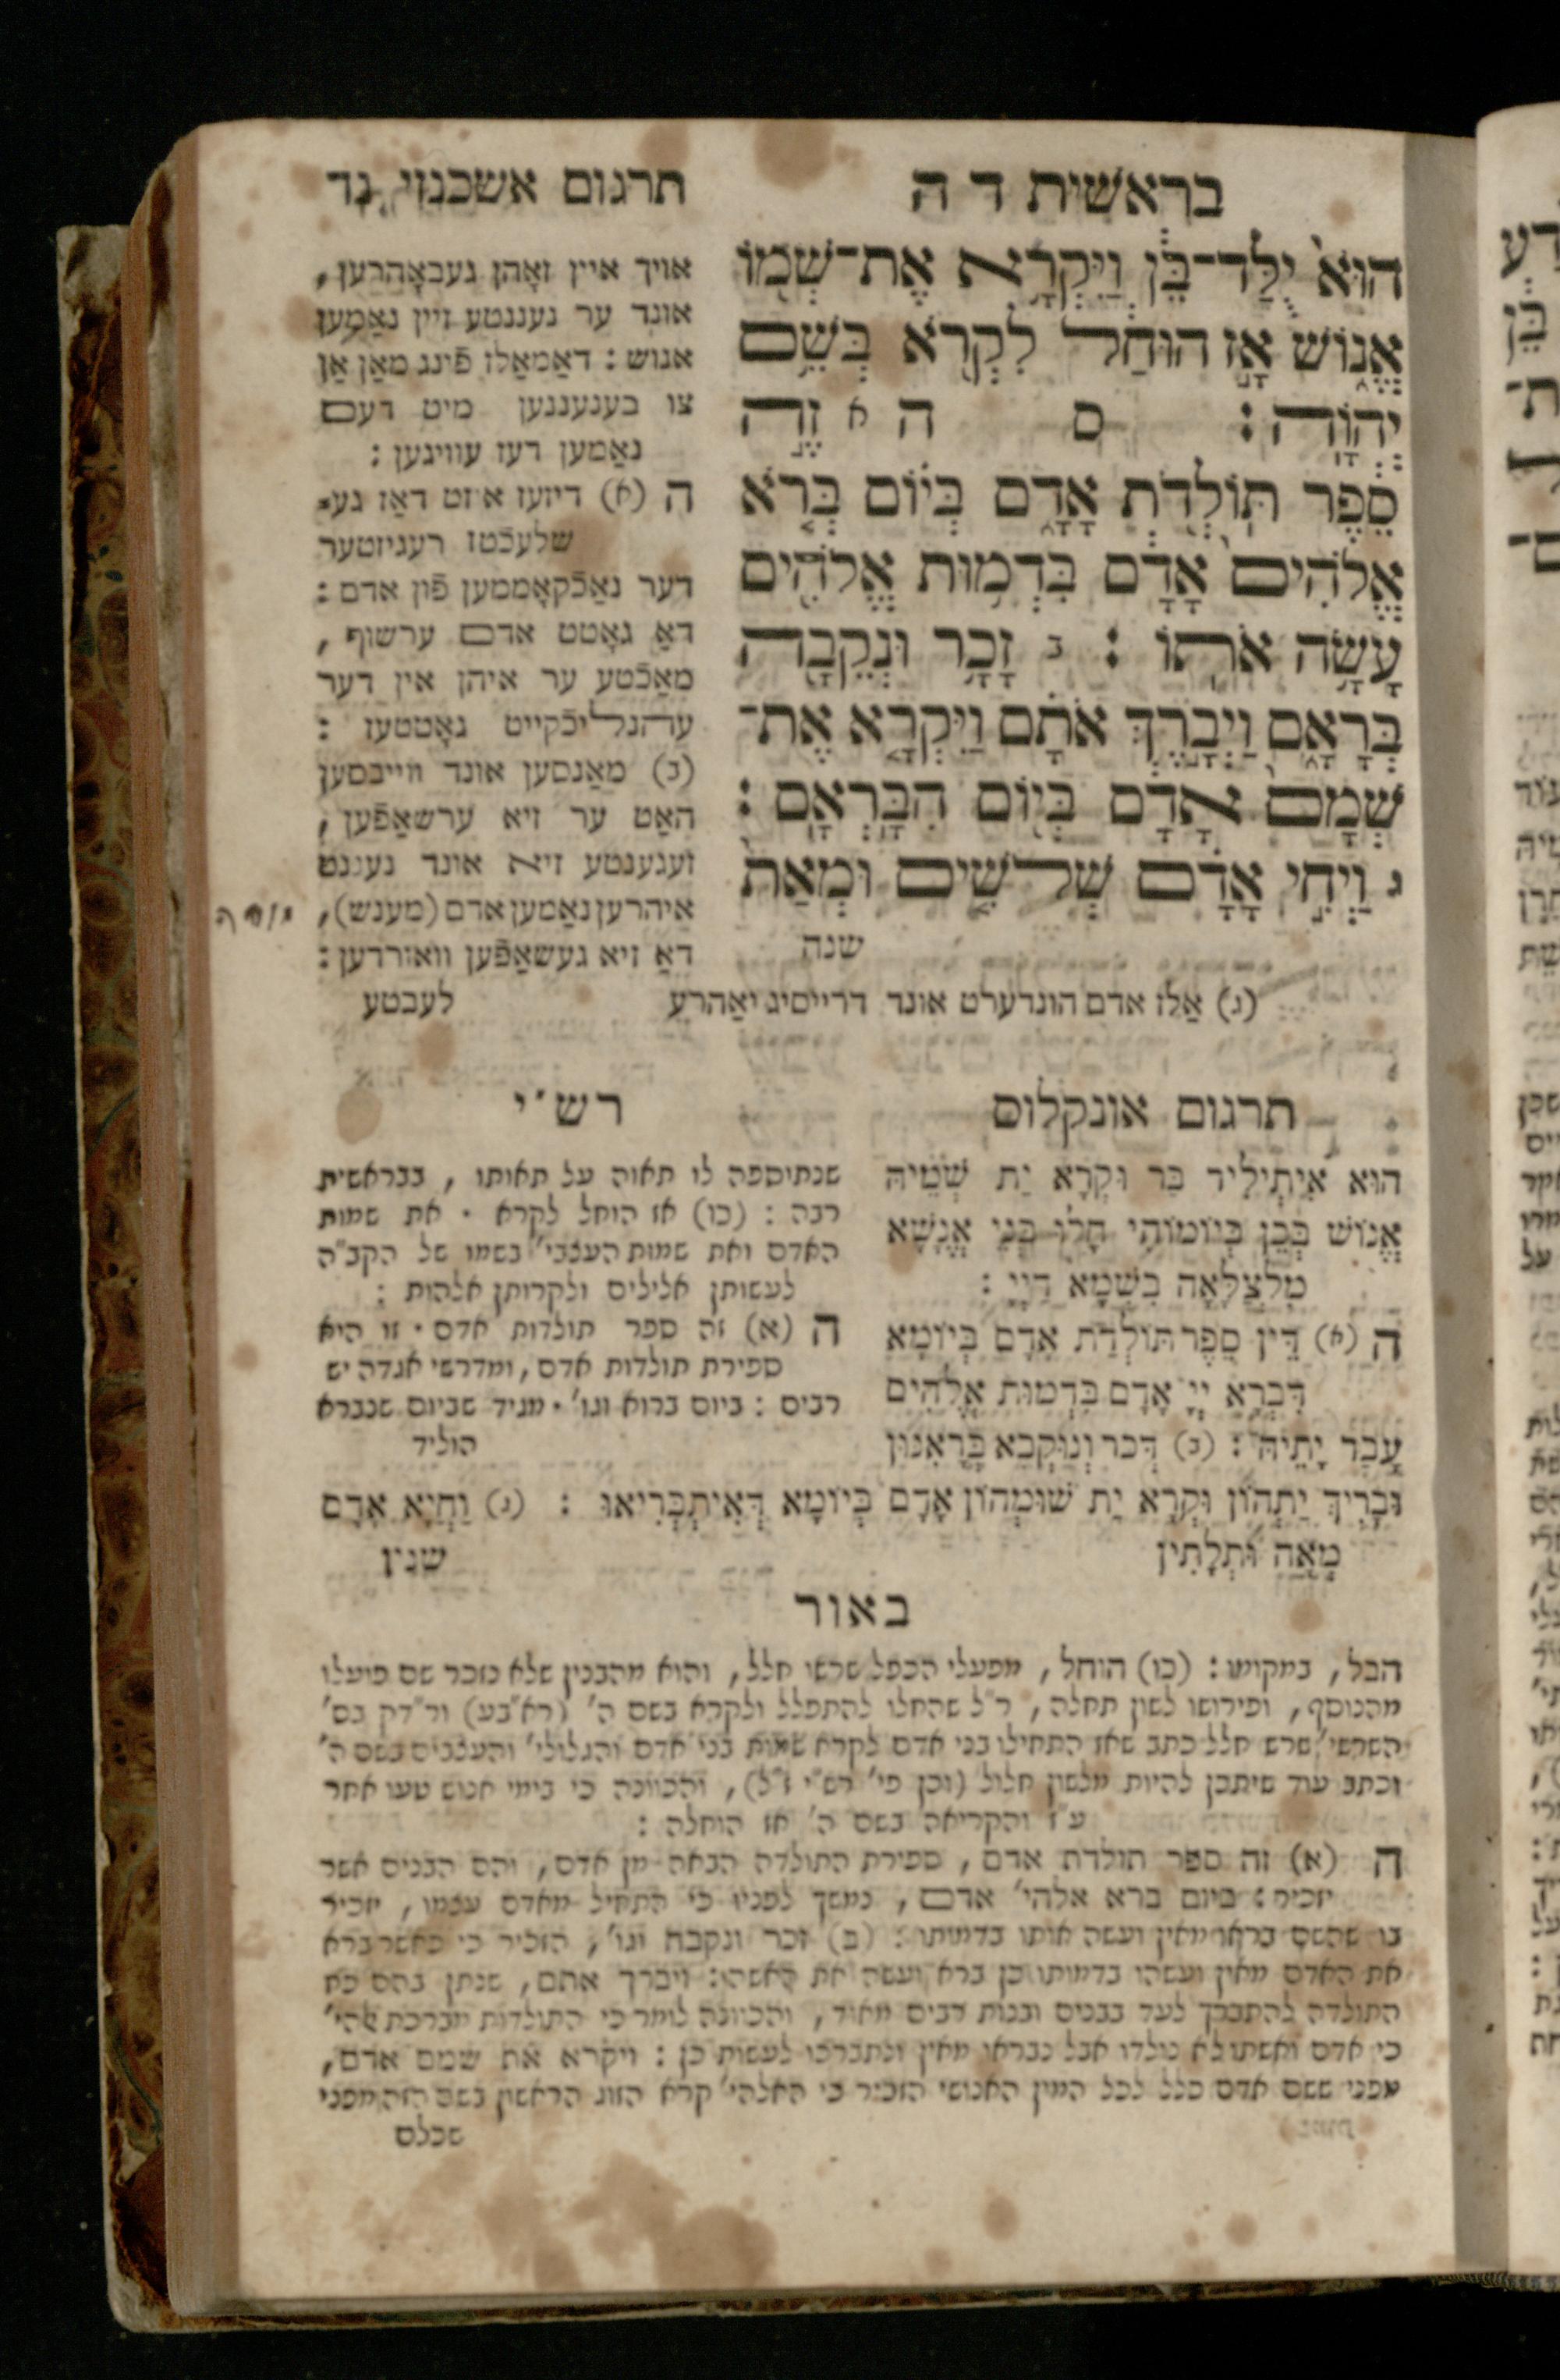 בראשית ד ה
תרגום אשכנזי נד
הוּא֙ יֻלַּד־בֵּ֔ן וַיִּקְרָ֥א אֶת־שְׁמ֖וֹ
אֱנ֑וֹשׁ אָ֣ז הוּחַ֔ל לִקְרֹ֖א בְּשֵׁ֥ם
יְהוָֽה: ס ה א זֶ֣ה
סֵ֔פֶר תּוֹלְדֹ֖ת אָדָ֑ם בְּי֗וֹם בְּרֹ֤א
אֱלֹהִים֙ אָדָ֔ם בִּדְמ֥וּת אֱלֹהִ֖ים
עָשָׂ֥ה אֹתֽוֹ: ב זָכָ֥ר וּנְקֵבָ֖ה
בְּרָאָ֑ם וַיְבָ֣רֶךְ אֹתָ֗ם וַיִּקְרָ֤א אֶת־
שְׁמָם֙ אָדָ֔ם בְּי֖וֹם הִבָּֽרְאָֽם:
ג וַֽיְחִ֣י אָדָ֗ם שְׁלֹשִׁ֤ים וּמְאַת֙
שנה
אויך איין זאָהן געבאָהרען,
אונד ער נעננטע זיין נאַמען
אנוש: דאַמאַלז פֿינג מאַן אַן
צו בענעננען מיט דעם
נאַמען דעז עוויגען:
ה (א) דיזעז איזט דאַז גע־
שלעכֿטז רעגיזטער
דער נאַכֿקאָממען פֿון אדם:
דאַ גאָטט אדם ערשוף,
מאַכֿטע ער איהן אין דער
עהנליכֿקייט גאָטטעז:
(ב) מאַנסען אונד ווייבסען
האַט ער זיא ערשאַפֿען,
זעגענטע זיא אונד נעננט
איהרען נאַמען אדם (מענש),
דאַ זיא געשאַפֿען וואורדען:
(ג) אַלז אדם הונדערט אונד דרייסיג יאַהרע לעבטע
תרגום אונקלוס
הוּא אִיתְיְלִיד בַּר וּקְרָא יַת שְׁמֵיהּ
אֱנוֹשׁ בְּכֵן בְּיוֹמוֹהִי חָלוּ בְּנֵי אֱנָשָׁא
מִלְצַלָּאָה בִשְׁמָא דַיְיָ:
ה (א) דֵּין סֵפֶר תּוּלְדַת אָדָם בְּיוֹמָא
דִּבְרָא יְיָ אָדָם בִּדְמוּת אֱלֹהִים
עֲבַד יָתֵיהּ: (ב) דְּכַר וְנוּקְבָא בְּרָאִנּוּן
וּבָרִיךְ יַתְהוֹן וּקְרָא יַת שׁוּמְהוֹן אָדָם בְּיוֹמָא דְּאִיתְבְּרִיאוּ: (ג) וַחֲיָא אָדָם
מְאָה וּתְלָתִין שנין
רש״י
שנתוספה לו תאוה על תאותו, בבראשית
רבה: (כו) אז הוחל לקרא. את שמות
האדם ואת שמות העצבי' בשמו של הקב"ה
לעשותן אלילים ולקרותן אלהות:
ה (א) זה ספר תולדות אדם. זו היא
ספירת תולדות אדם, ומדרשי אגדה יש
רבים: ביום ברוא וגו'. מגיד שביום שנברא
הוליד
באור
הבל, במקומו: (כו) הוחל, מפעלי הכפל שרשו חלל, והוא מהבנין שלא נזכר שם פועלו
מהנוסף, ופירושו לשון תחלה, ר"ל שהחלו להתפלל ולקרא בשם ה' (רא"בע) ור"דק בס'
השרשי' שרש חלל כתב שאז התחילו בני אדם לקרא שמות בני אדם והגלולי' והעצבים בשם ה'
וכתב עוד שיתכן להיות מלשון חלול (וכן פי' רש"י ז"ל), והכוונה כי בימי אנוש טעו אחר
ע"ז והקריאה בשם ה' אז הוחלה:
ה (א) זה ספר תולדת אדם, ספירת התולדה הבאה מן אדם, והם הבנים אשר
יזכיר: ביום ברא אלהי' אדם, נמשך לפניו כי התחיל מאדם עצמו, יזכיר
בו שהשם בראו מאין ועשה אותו בדמותו: (ב) זכר ונקבה וגו', הזכיר כי כאשר ברא
את האדם מאין ועשהו בדמותו כן ברא ועשה את האשה: ויברך אתם, שנתן בהם כח
התולדה להתברך לעד בבנים ובנות רבים מאוד, והכוונה לומר כי התולדות מברכת אלהי'
כי אדם ואשתו לא נולדו אבל נבראו מאין ונתברכו לעשות כן: ויקרא את שמם אדם,
מפני ששם אדם כלל לכל המין האנושי הזכיר כי האלהי' קרא הזוג הראשון בשם הזה מפני
שכלם